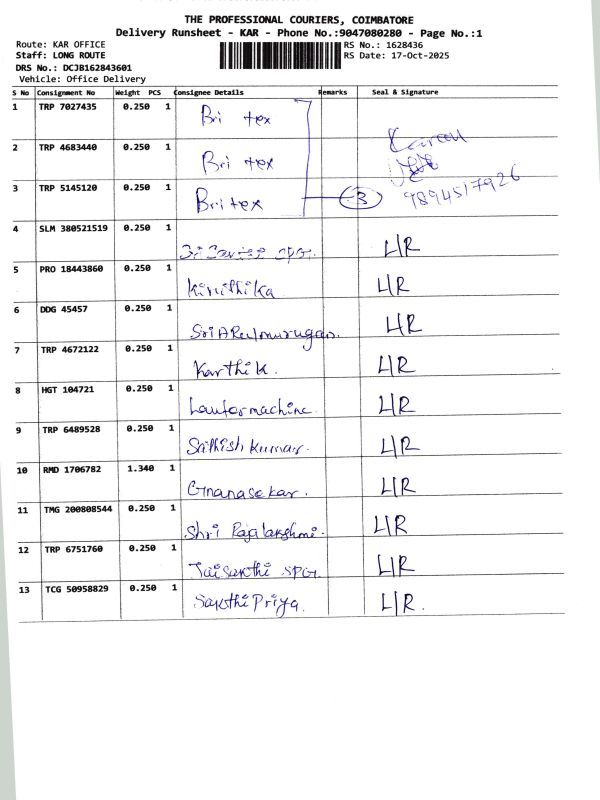 THE PROFESSIONAL COURIERS, COIMBATORE
Delivery Runsheet - KAR - Phone No.:9047080280 - Page No.:1
Route: KAR OFFICE RS No.: 1628436
Staff: LONG ROUTE RS Date: 17-Oct-2025
DRS No.: DCJB162843601
Vehicle: Office Delivery
S No Consignment No Weight PCS Consignee Details Remarks Seal & Signature
1 TRP 7027435 0.250 1 Bri tex
2 TRP 4683440 0.250 1 Bri tex
3 TRP 5145120 0.250 1 Britex 3 9894517926
4 SLM 380521519 0.250 1 L/R
5 PRO 18443860 0.250 1 Kiruthika L/R
6 DDG 45457 0.250 1 L/R
7 TRP 4672122 0.250 1 Karthik. L/R
8 HGT 104721 0.250 1 L/R
9 TRP 6489528 0.250 1 Sathish kumar. L/R
10 RMD 1706782 1.340 1 Gnanasekar. L/R
11 TMG 200808544 0.250 1 Shri Rajalakshmi. L/R
12 TRP 6751760 0.250 1 Jaisakthi SPG. L/R
13 TCG 50958829 0.250 1 Sakthi Priya. L/R.